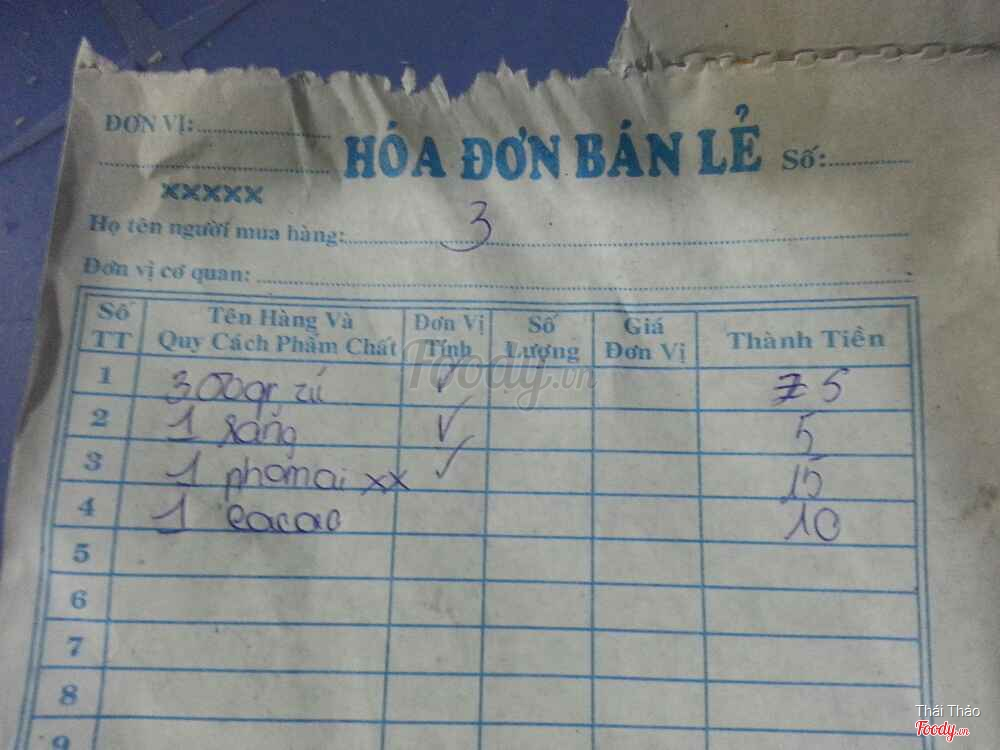 ĐƠN VỊ:
HÓA ĐƠN BÁN LẺ
Số:
XXXXX
Họ tên người mua hàng: 3
Đơn vị cơ quan:
Số TT Tên Hàng Và Quy Cách Phẩm Chất Đơn Vị Tính Số Lượng Giá Đơn Vị Thành Tiền
1 300gr zú ✓ 75
2 1 sảng ✓ 5
3 1 phomai xx ✓ 15
4 1 cacao 10
5
6
7
8
9
Foody.vn
Thái Thảo
Foody.vn